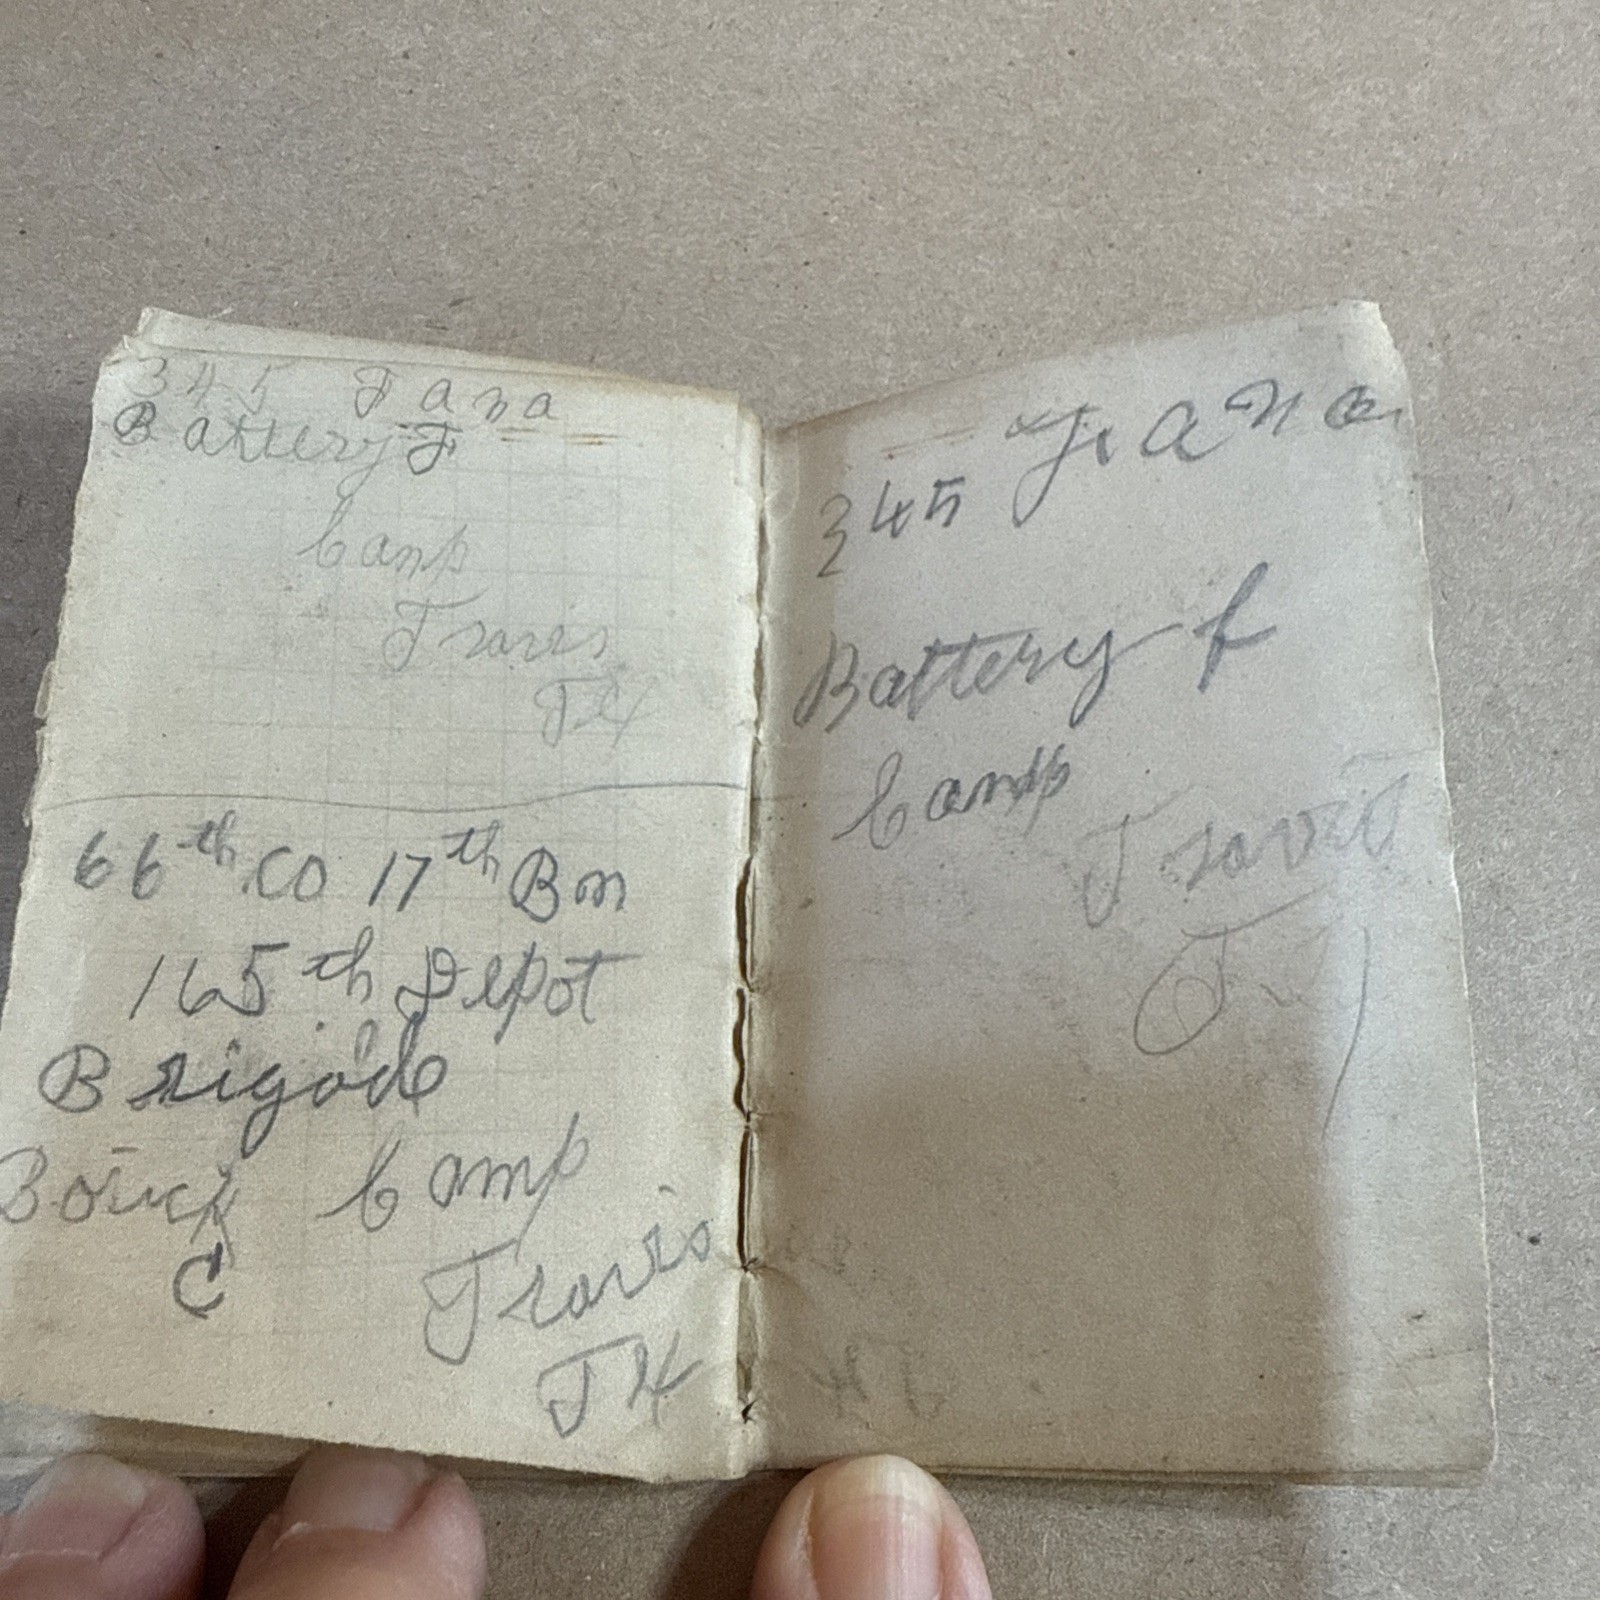 345 F a n a
Battery F
Camp
Travis
TX
66th CO 17th Bn
165th Depot
Brigade
Camp
C
Travis
TX
F. a n a
345
Battery f
Camp
Travis